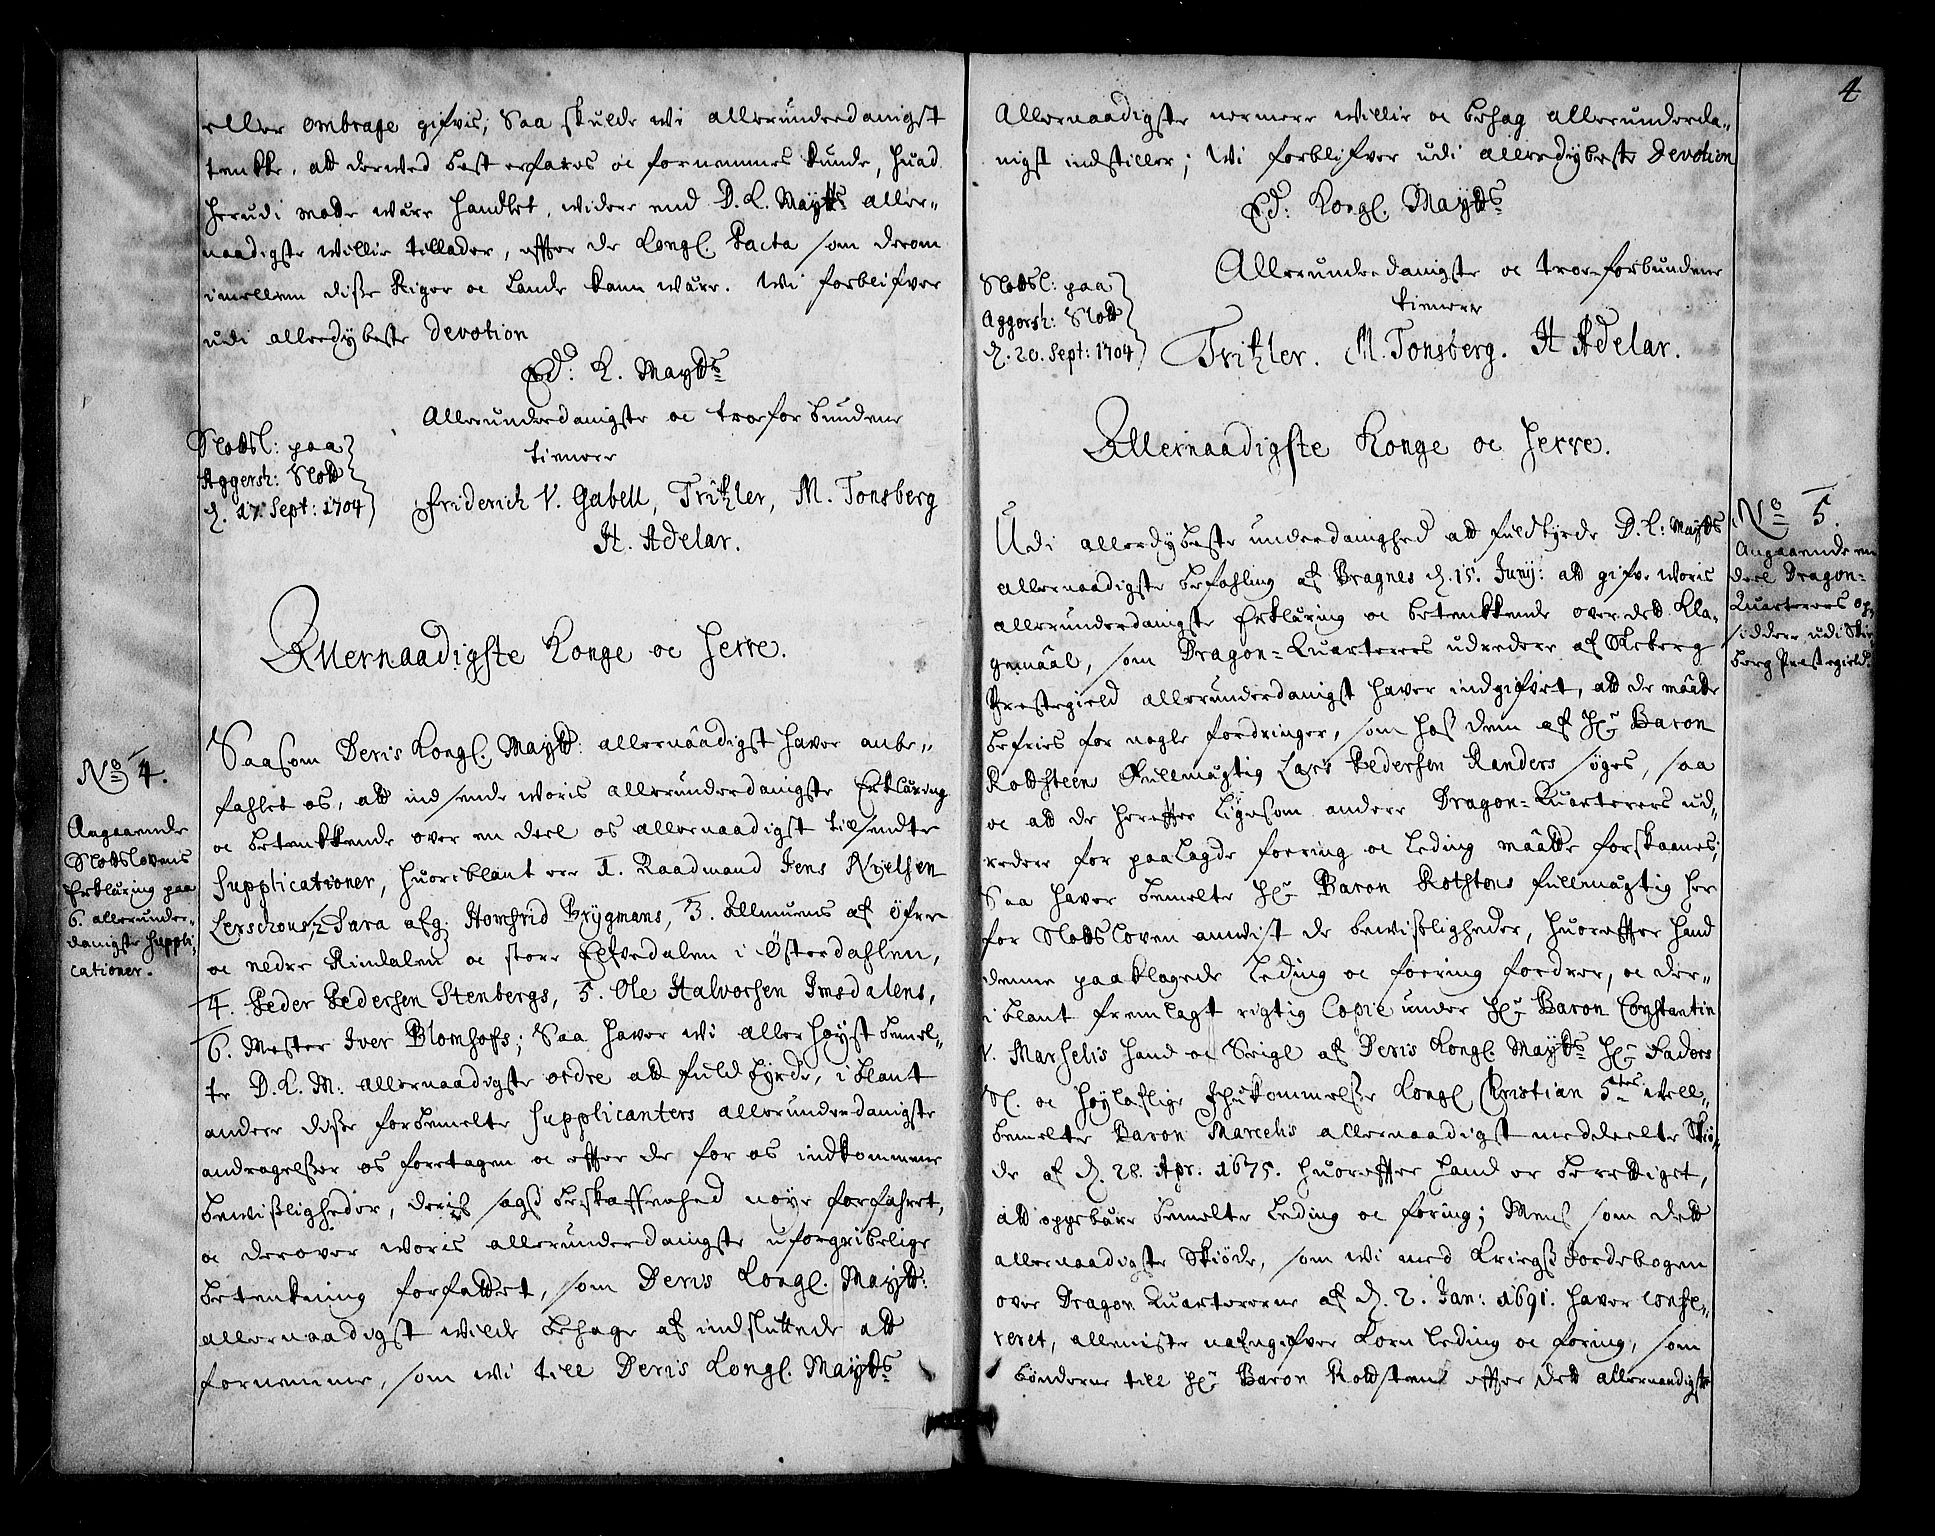 eller ombrage gifvis; Saa skulde wi allerunderdanigst
tenkke, att derwed best erfares oc fornemmes kunde, huad
herudi motte wære handlet, widere end D. K. Maytts aller-
naadigste willie tillader, efter de Kongl. Pacta som derom
imellem disse Riger oc Lande kann wære. Wi forblifver
udi allerdybeste Devotion
Ed: K. Maytts
Allerunderdanigste oc troeforbundene
tienere
Slottsl: paa
Aggersh: Slott
d. 17. Sept: 1704
Friderich V. Gabell, Tritzler, M. Tonsberg
H. Adelar.
Allernaadigste Konge oc Herre.
No 4.
Angaaende
Slottslovens
Erklæring paa
6. allerunder-
danigste Suppli-
cationer.
Saasom Deris Kongl. Maytt: allernaadigst haver anbe-
fahlet os, att indsende woris allerunderdanigste Erklæring
oc betenkkende over en deel os allernaadigst tilsendte
Supplicationer, huoriblant ere 1. Raadmand Jens Nielsen
Lerschous, 2. Sara afg. Homfrid Brygmans, 3. Allmuens af Øfre
oc nedre Rindalen oc store Elfvedalen i Østerdahlen,
4. Peder Pedersen Stenbergs, 5. Ole Halvorsen Imsdalens,
6. Mester Iver Blomhofs; Saa haver wi aller høyst bemel-
te D. K. M: allernaadigste ordre att fuldbyrde, iblant
andere disse forbemelte Supplicanters allerunderdanigste
andragelsser os foretagen oc efter de for os indkommene
bewisligheder, deris sags beskaffenhed nøye forfahret,
oc derover woris allerunderdanigste uforgribelige
betenkning forfattet, som Deris Kongl. Maytt:
allernaadigst wilde behage af indsluttede att
fornemme, som wi till Deris Kongl. Maytts
4
Allernaadigste nermere willie oc behag allerunderda-
nigst indstiller; Wi forblifver udi allerdybeste Devotion
Ed: Kongl. Maytts
Allerunderdanigste oc troeforbundene
tienere
Slottsl: paa
Aggersh: Slott
d. 20. Sept: 1704
Tritzler. M. Tonsberg. H Adelar.
Allernaadigste Konge oc Herre.
No 5.
Angaaende en
deel Dragon-
Quarterers op-
siddere udi Skie-
berg Prestegield.
Udi allerdybeste underdanighed att fuldbyrde D. K: Maytts
allernaadigste befahling af Bragnes d. 15. Junij: att gifve woris
allerunderdanigste Erklæring oc betenkkende over dett Kla-
gemaal, som Dragon-Quarterers udredere af Skeberg
Prestegield allerunderdanigst haver indgifvet, att de maatte
befries for nogle fordringer, som hos dem af Hr Baron
Rottsteens Fullmægtig Lars Pedersen Randers søges, saa
oc att de herefter ligesom andere Dragon-Quarterers ud-
redere for paalagde foering oc Leding maatte forskaanes;
Saa haver bemelte Hr Baron Rotstens fullmægtig her
for Slottsloven anwist de bewisligheder, huorefter hand
denne paaklagede Leding oc foering fordrer, oc der-
iblant fremlagt rigtig Copie under Hr Baron Constantin
V. Marselis hand oc Seigl af Deris Kongl. Maytts Hr Faders
Sl. oc høylaflige Ihukommelsse Kongl Christian 5tes well-
bemelte Baron Marcelis allernaadigst meddeelte Skiø-
de af d. 28. Apr: 1675. huorefter hand er berettiget,
att oppebære bemelte Leding oc foring; Mens som dett
allernaadigste Skiøde, som wi med Kriegs Jordebogen
over Dragon Quartererne af d. 2. Jan: 1691. haver confe-
reret, alleniste nafngifver Korn Leding oc foring, som
bønderne till Hr Baron Rottstens efter dett allernaadigste